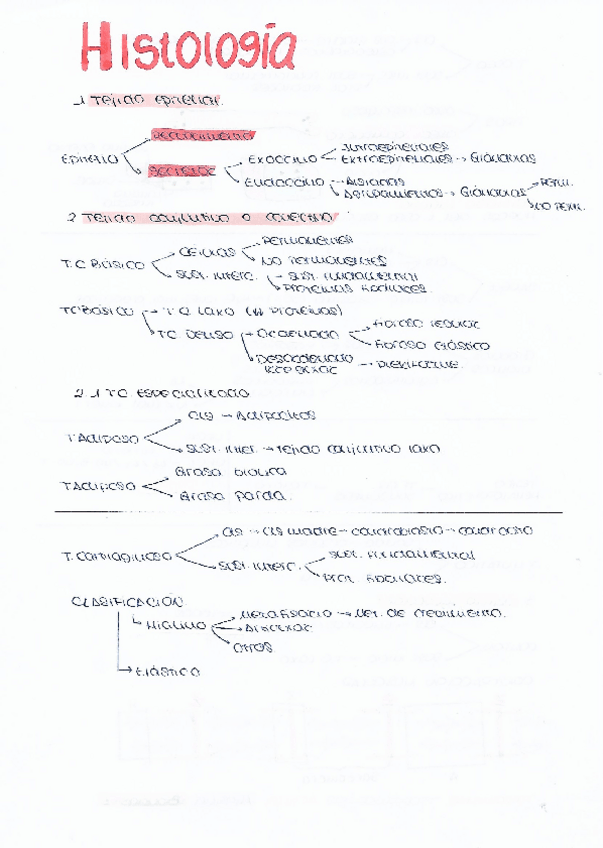 Histología
1 Tejido Epitelial.
Recubrimiento
Epitelio
Secretor
Exocrino
Intraepiteliales
Extraepiteliales → Glándulas
Endocrino
Aisladas
Glándulas
Perm.
No Perm.
2 Tejido conjuntivo o conectivo
T.C Básico
Células
Permanentes
No Permanentes
Sust. Interc.
Sust. Fundamental
Proteínas fibrilares.
TC Básico
T.C. Laxo (↓↓ Proteínas)
TC Denso
Ordenado
Fibroso regular
Fibroso elástico
Desordenado
Irregular
2.1 TC Especializado
T Adiposo
Cls → Adipocitos
Sust. Inter. → Tejido conjuntivo laxo
T Adiposo
Grasa blanca
Grasa parda.
T. Cartilaginoso
Cls → Cls madre → condroblasto → condrocito
Sust. Interc.
Sust. Fundamental
Prot. fibrilares.
CLASIFICACIÓN
Hialino
Metafisario → de crecimiento.
Articular
Otros
Elástico